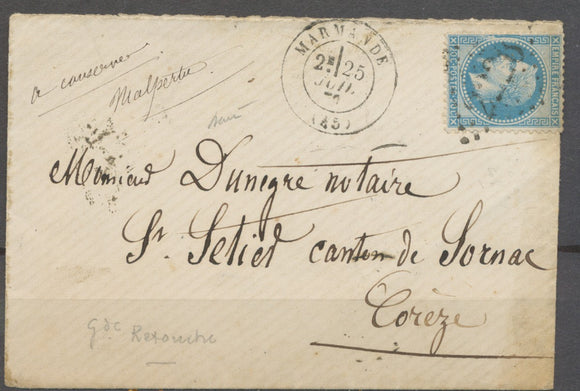 MARMANDE
2E 25
JUIL.
(45)
EMPIRE FRANÇAIS
a conserver
Malpertu
Monsieur Dunegre notaire
St Setiet canton de Sornac
Corèze
Gde Retouche